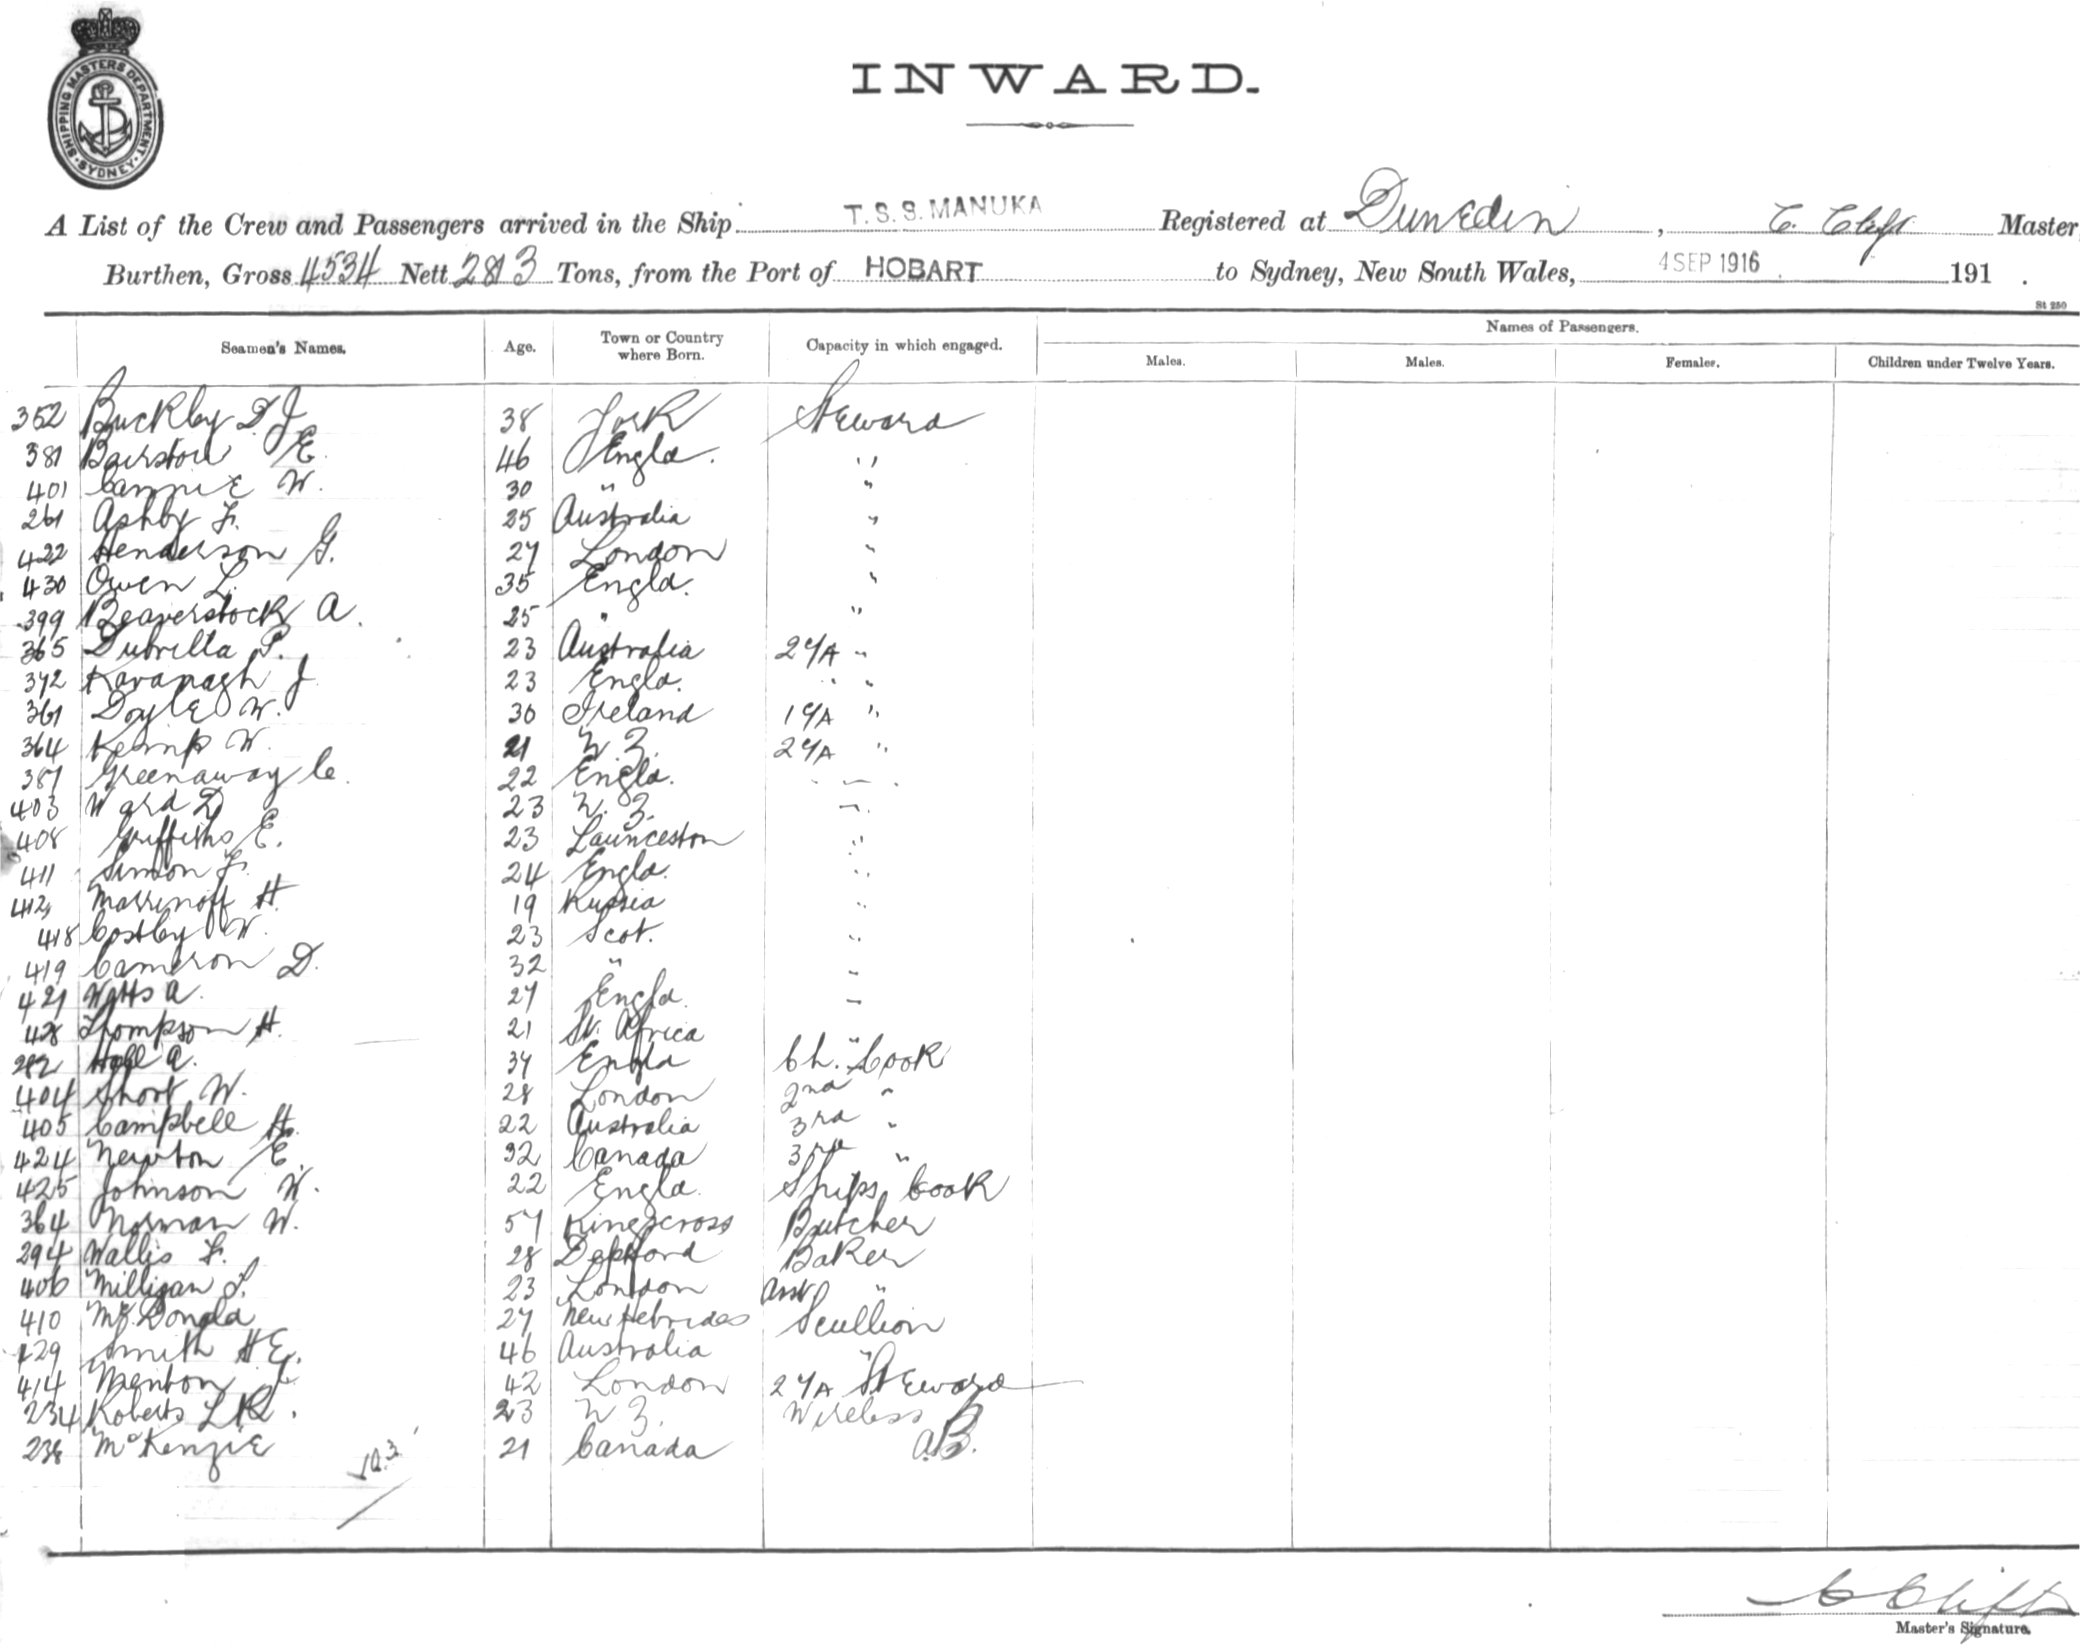 SHIPPING MASTERS DEPARTMENT
SYDNEY
INWARD.
A List of the Crew and Passengers arrived in the Ship T.S.S. MANUKA Registered at Dunedin, C. Clift Master
Burthen, Gross 4534 Nett 2813 Tons, from the Port of HOBART to Sydney, New South Wales, 4 SEP 1916 191 .
St 250
Seamen's Names. Age. Town or Country where Born. Capacity in which engaged. Names of Passengers.
Males. Males. Females. Children under Twelve Years.
352 Buckley D J 38 York Steward
381 Bairstow E. 46 Engld. "
401 W. 30 " "
261 Ashby F. 25 Australia "
422 Henderson G. 27 London "
430 Owen L. 35 Engld. "
399 Beaverstock A. 25 " "
365 P. 23 Australia "
372 Kavanagh J 23 Engld. " "
361 Doyle W. 30 Ireland "
364 Kemp W. 21 N.Z. "
387 Greenaway C. 22 Engld. "
403 Ward D 23 N.Z. "
408 Griffiths E. 23 Launceston "
411 Simon F. 24 Engld. "
412 H 19 Russia "
418 Costley W. 23 Scot. "
419 Cameron D. 32 " "
421 Watts A. 27 Engld. "
428 Thompson H. 21 Africa "
282 A. 37 Engld Ch. Cook
404 Short W. 28 London 2nd "
405 Campbell H. 22 Australia 3rd "
424 Newton E. 32 Canada 3rd "
425 Johnson W. 22 Engld. Ships Cook
364 Norman W. 57 Kingscross Butcher
294 Wallis F. 28 Deptford Baker
406 Milligan 23 London Asst "
410 McDonald 27 New Hebrides Scullion
429 Smith H E. 46 Australia "
414 42 London Steward
234 Roberts L R. 23 N.Z. Wireless
238 McKenzie 21 Canada A.B.
C Clift
Master's Signature.